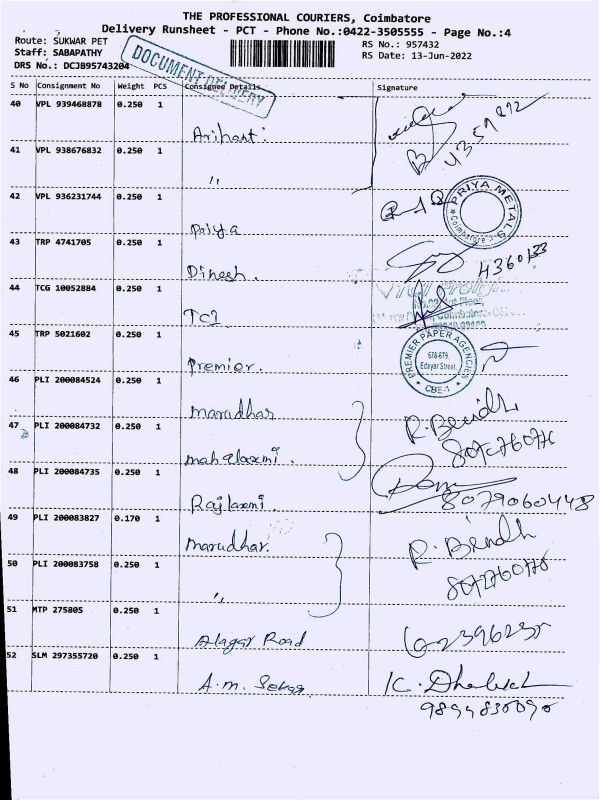 THE PROFESSIONAL COURIERS, Coimbatore
Delivery Runsheet - PCT - Phone No.:0422-3505555 - Page No.:4
Route: SUKWAR PET
RS No.: 957432
Staff: SABAPATHY
RS Date: 13-Jun-2022
DRS No.: DCJB95743204
DOCUMENT DELIVERY
S No Consignment No Weight PCS Consignee Details Signature
40 VPL 939468878 0.250 1
Arihant
41 VPL 938676832 0.250 1
"
42 VPL 936231744 0.250 1
Priya
PRIYA METALS
Coimbatore-1
43 TRP 4741705 0.250 1
Dinesh.
4360133
44 TCG 10052884 0.250 1
TCI
45 TRP 5021602 0.250 1
Premier.
PREMIER PAPER AGENCIES
678-679,
Edayar Street,
CBE-1
46 PLI 200084524 0.250 1
marudhar
47 PLI 200084732 0.250 1
mahalaxmi.
48 PLI 200084735 0.250 1
Rajlaxmi.
8079060448
49 PLI 200083827 0.170 1
marudhar.
50 PLI 200083758 0.250 1
"
51 MTP 275805 0.250 1
Alagar Road
52 SLM 297355720 0.250 1
A.m. Sekar
9894830090